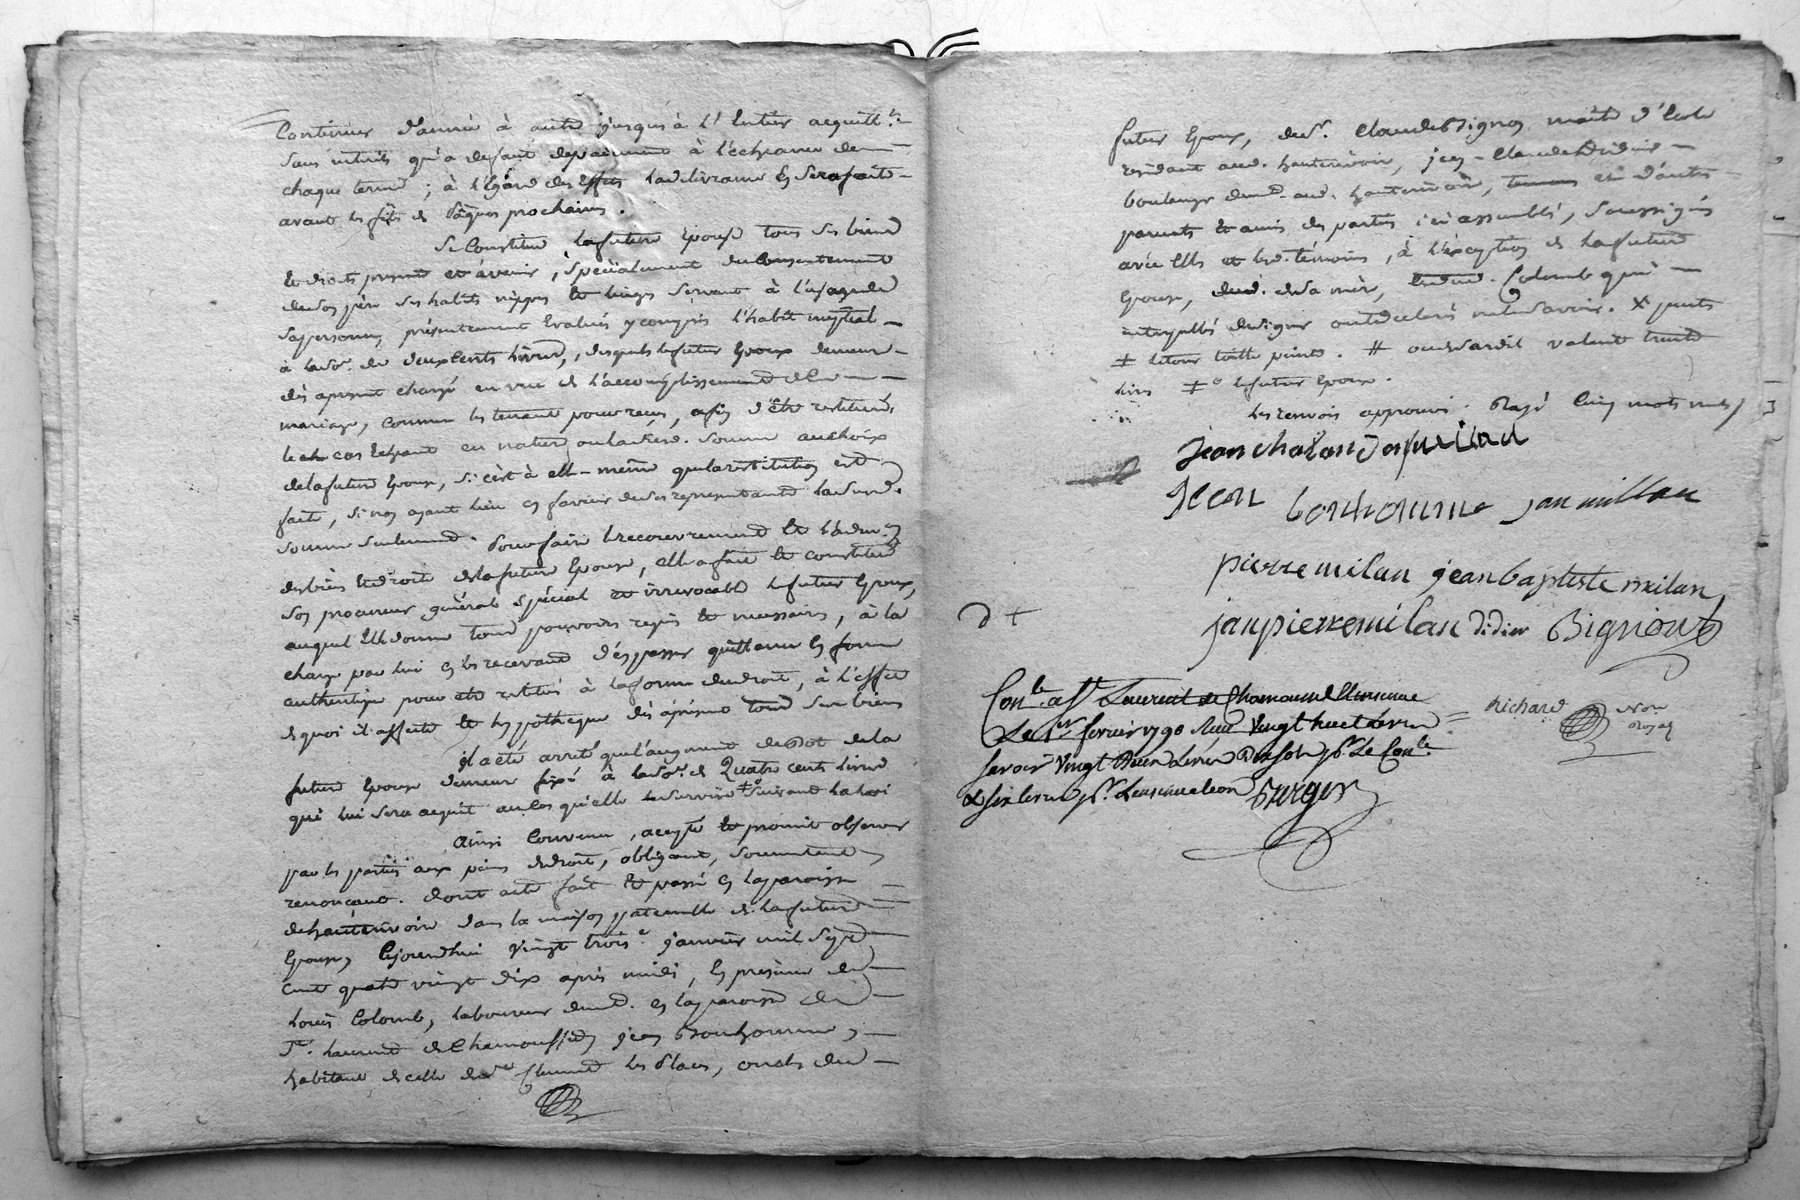 Continuer d'année à autre jusqu'à l'entier acquittt.
sans intérêts qu'à defaut depaiement à l'échéance de
chaque terme ; à l'égard des effets la delivrance en sera faite
avant les fêtes de Pâques prochaines.
Se Constitue la future Epouse tous ses biens
et droits presents et àvenir, spécialement du Consentement
deson père ses habits nippes et linges servant à l'usage de
sapersonne, présentement Evalués ycompris l'habit nuptial
à la so. de deux cents livres, desquels le futur Epoux demeure
dès àprésent chargé en vue de l'accomplissement de
mariage, comme les tenant pour reçus, afin d'être restitués
le cas Echéant en nature ou la somme au choix
de la future Epouse, si c'est à elle-même que la restitution est
faite, si non ayant lieu en faveur de ses representants la
somme seulement. Pour faire le recouvrement et
des biens et droits de la future Epouse, elle a fait et constitué
son procureur général spécial et irrevocable le futur Epoux,
auquel Elle donne tous pouvoirs requis et necessaires, à la
charge par lui en les recevant d'en passer quittance en forme
authentique pour etre restitués à la forme du droit, à l'effet
de quoi il affecte et hypotheque dès àprésent tous ses biens
Il a été arrêté que l'augment de Dot de la
future Epouse demeure fixé à la so. de Quatre cents livres
qui lui sera acquit au cas qu'elle le survive ≠° suivant la loi
Ainsi Convenu, accepté et promit observer
par les parties aux peines de droit, obligeant, soumettant
renonçant. Dont acte fait et passé en la paroisse
de hauterivoire dans la maison paternelle de la future
Epouse, Cejourd'hui vingt trois e. janvier mil sept
cent quatre vingt dix après midi, En presence de
Louis Colomb, laboureur demt. en la paroisse de
St. Laurent de Chamousset, jean Bonhomme,
habitant de celle de Ste Clement les Places, oncles du
futur Epoux, de Sr. Claude Bignon maitre d'Ecole
résidant aud. hauterivoire, jean-Claude
boulanger demt. aud. hauterivoire, et d'autres
parents et amis des parties ici assemblés, soussignés
avec Elles et lesd. témoins, à l'exception de la future
Epouse, de sa mère, Colomb qui
interpellés de signer ont declaré ne le savoir. X puits
≠ letour taille pointe. # valant trente
livres ≠° le futur Epoux.
Les renvois approuvés. Rayé Cinq mots nuls
Jean chatan
Jean bonhomme jan millan
pierre milan jean baptiste milan
jan pierre milan didier Bignont
Conle. a St Laurent de Chamousset
Le 1er fevrier 1790 Recu Vingt huit Livres
Savoir Vingt Deux Livres Dix sols pr Le Conle
& six livres pr L'insinuation Burger
Richard Nore Royal